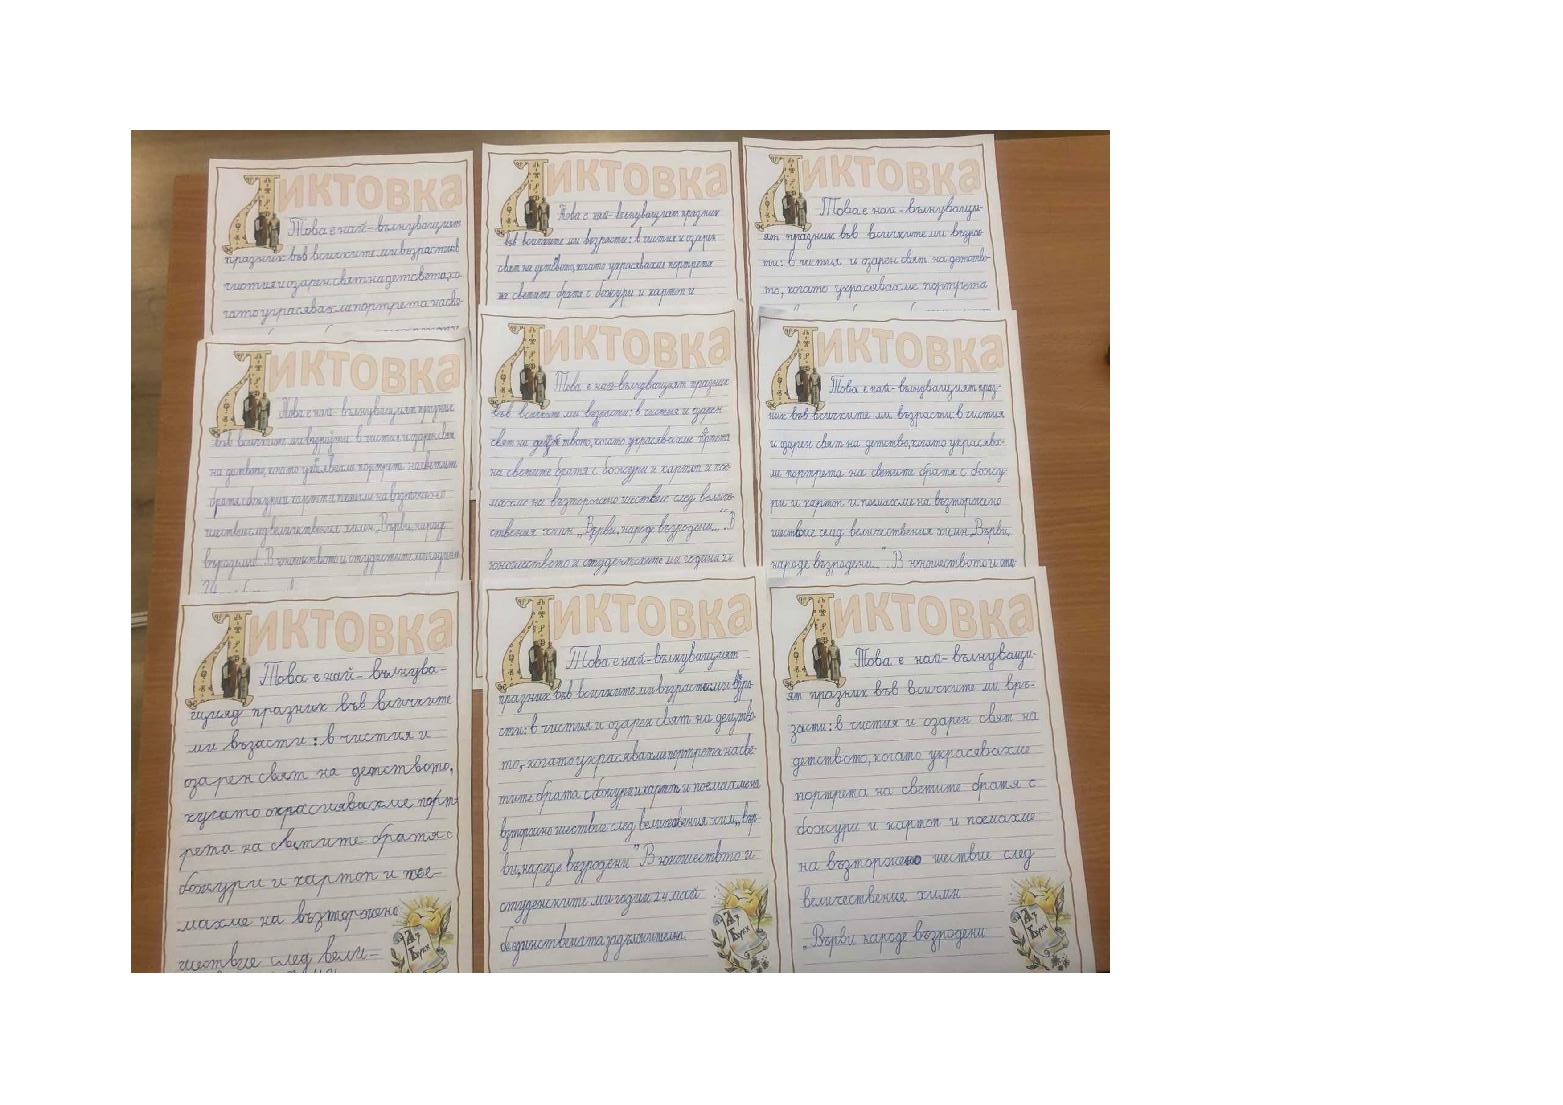 Диктовка
Това е най-вълнуващият
празник във всичките ми възрасти: в
чистия и озарен свят на детството, ко-
гато украсявахме портрета на све-
Диктовка
Това е най-вълнуващият празник
във всичките ми възрасти: в чистия и озарен
свят на детството, когато украсявахме портрета
на светите братя с божури и картон и
Диктовка
Това е най-вълнуващи-
ят празник във всичките ми възрас-
ти: в чистия и озарен свят на детство-
то, когато украсявахме портрета
Диктовка
Това е най-вълнуващият празник
във всичките ми в чистия и озарен свят
на портрета на светите
братя с божури и картон и на възторжено
шествие химн „Върви, народе
възродени" В юношеството и студентските ми години
Диктовка
Това е най-вълнуващият празник
във всичките ми възрасти: в чистия и озарен
свят на детството, когато украсявахме
на светите братя с божури и картон и пое-
махме на възторжено шествие след величе-
ствения химн „Върви, народе възродени..." В
юношеството и студентските ми години 24
Диктовка
Това е най-вълнуващият праз-
ник във всичките ми възрасти: в чистия
и озарен свят на детство, когато украсявах-
ми портрета на светите братя с божу-
ри и картон и поемахме на възторжено
шествие след величествения химн „Върви,
народе възродени..." В юношеството и сту-
Диктовка
Това е най-вълнува-
щияд празник във всичките
ми възасти: в чистия и
озарен свят на детството,
кугато окрасявахме порт-
рета на светите братя с
божури и картон и пое-
махме на възторжено
шествие след вели-
Аз
Буки
Диктовка
Това е най-вълнуващият
празник във всичките ми
сти: в чистия и озарен свят на детство-
то, когато украсявахми портрета на све-
тите братя с божури и картон и поемахме на
шествие след химн „Вър-
ви, народе възродени" В юношеството и
студенските ми годин 24 май
бе единствената
Аз
Буки
Диктовка
Това е най-вълнуващи-
ят празник във всичките ми връ-
засти: в чистия и озарен свят на
детството, когато украсявахме
портрета на светите братя с
божури и картон и поемахме
на възторжено шествие след
величествения химн
„Върви народе възродени
Аз
Буки